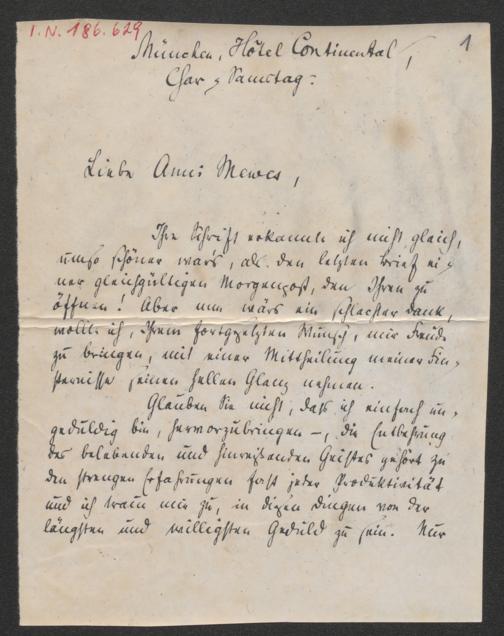 I.N. 186.629
1
München, Hôtel Continental,
Char-Samstag:
Liebe Anni Mewes,
Ihre Schrift erkannte ich nicht gleich,
umso schöner war's, als den letzten Brief ei-
ner gleichgültigen Morgenpost, den Ihren zu
öffnen! Aber nun wärs ein schlechter Dank,
wollte ich, Ihrem fortgesetzten Wunsch, mir Freude
zu bringen, mit einer Mittheilung meiner Fin-
sternisse seinen hellen Glanz nehmen.
Glauben Sie nicht, daß ich einfach un-
geduldig bin, hervorzubringen –, die Entbehrung
des belebenden und hinreißenden Geistes gehört zu
den strengen Erfahrungen fast jeder Produktivität
und ich traue mir zu, in diesen Dingen von der
längsten und willigsten Geduld zu sein. Nur